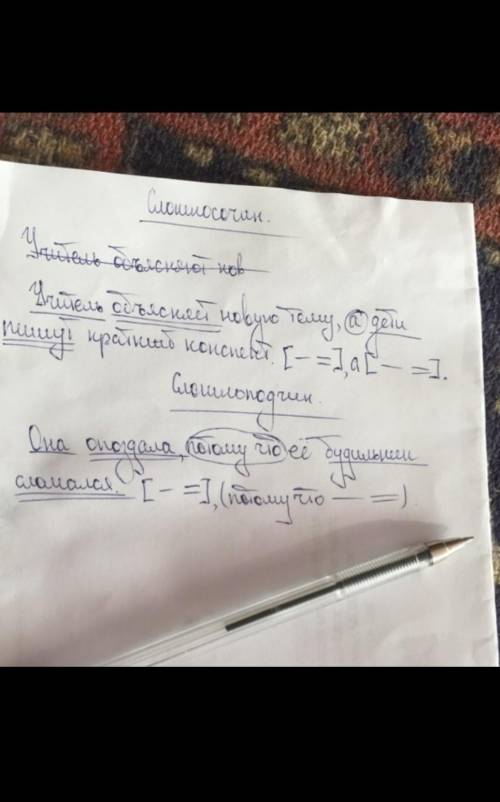 Сложносочин.
Учитель объясняет нов
Учитель объясняет новую тему, а дети
пишут краткий конспект. [— =], а [— =].
Сложноподчин.
Она опоздала, потому что её будильник
сломался. [— =], (потому что — =)